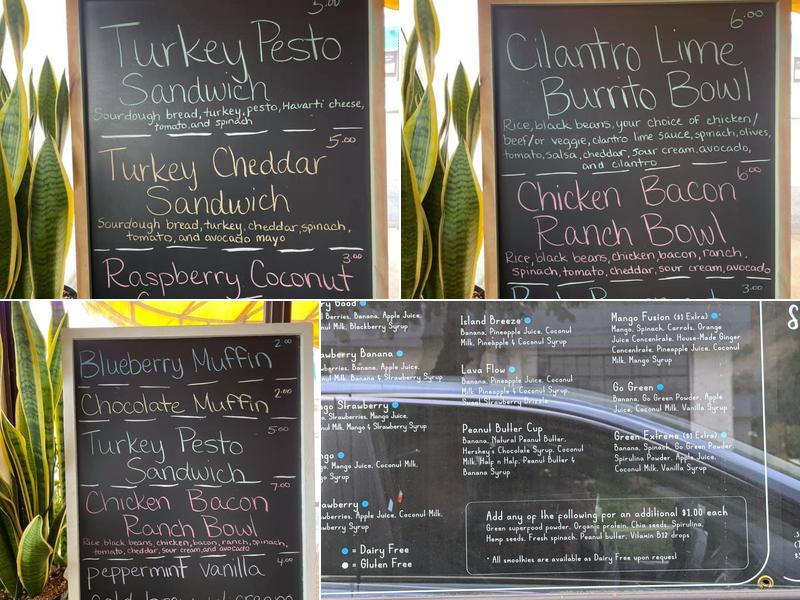 5.00
Turkey Pesto
Sandwich
Sourdough bread, turkey, pesto, Havarti cheese,
tomato, and spinach
5.00
Turkey Cheddar
Sandwich
Sourdough bread, turkey, cheddar, spinach,
tomato, and avocado mayo
3.00
Raspberry Coconut
6.00
Cilantro Lime
Burrito Bowl
Rice, black beans, your choice of chicken/
beef/or veggie, cilantro lime sauce, spinach, olives,
tomato, salsa, cheddar, sour cream, avocado,
and cilantro
6.00
Chicken Bacon
Ranch Bowl
Rice, black beans, chicken, bacon, ranch,
spinach, tomato, cheddar, sour cream, avocado
3.00
2.00
Blueberry Muffin
2.00
Chocolate Muffin
5.00
Turkey Pesto
Sandwich
7.00
Chicken Bacon
Ranch Bowl
Rice, black beans, chicken, bacon, ranch, spinach,
tomato, cheddar, sour cream, and avocado
4.00
peppermint vanilla
cold brew w/ cream
ry Good
berries, Banana, Apple Juice,
Coconut Milk, Blackberry Syrup
awberry Banana
wberries, Banana, Apple Juice,
nut Milk, Banana & Strawberry Syrup
ngo Strawberry
Strawberries, Mango Juice,
nut Milk, Mango & Strawberry Syrup
ngo
, Mango Juice, Coconut Milk,
Mango Syrup
awberry
wberries, Apple Juice, Coconut Milk,
wberry Syrup
= Dairy Free
= Gluten Free
Island Breeze
Banana, Pineapple Juice, Coconut
Milk, Pineapple & Coconut Syrup
Lava Flow
Banana, Pineapple Juice, Coconut
Milk, Pineapple & Coconut Syrup,
Strawberry Drizzle
Peanut Butter Cup
Banana, Natural Peanut Butter,
Hershey's Chocolate Syrup, Coconut
Milk, Half n Half, Peanut Butter &
Banana Syrup
Mango Fusion ($1 Extra)
Mango, Spinach, Carrots, Orange
Juice Concentrate, House-Made Ginger
Concentrate, Pineapple Juice, Coconut
Milk, Mango Syrup
Go Green
Banana, Go Green Powder, Apple
Juice, Coconut Milk, Vanilla Syrup
Green Extreme ($1 Extra)
Banana, Spinach, Go Green Powder,
Spirulina Powder, Apple Juice,
Coconut Milk, Vanilla Syrup
Add any of the following for an additional $1.00 each
Green superfood powder, Organic protein, Chia seeds, Spirulina,
Hemp seeds, Fresh spinach, Peanut butter, Vitamin B12 drops
* All smoothies are available as Dairy Free upon request
S